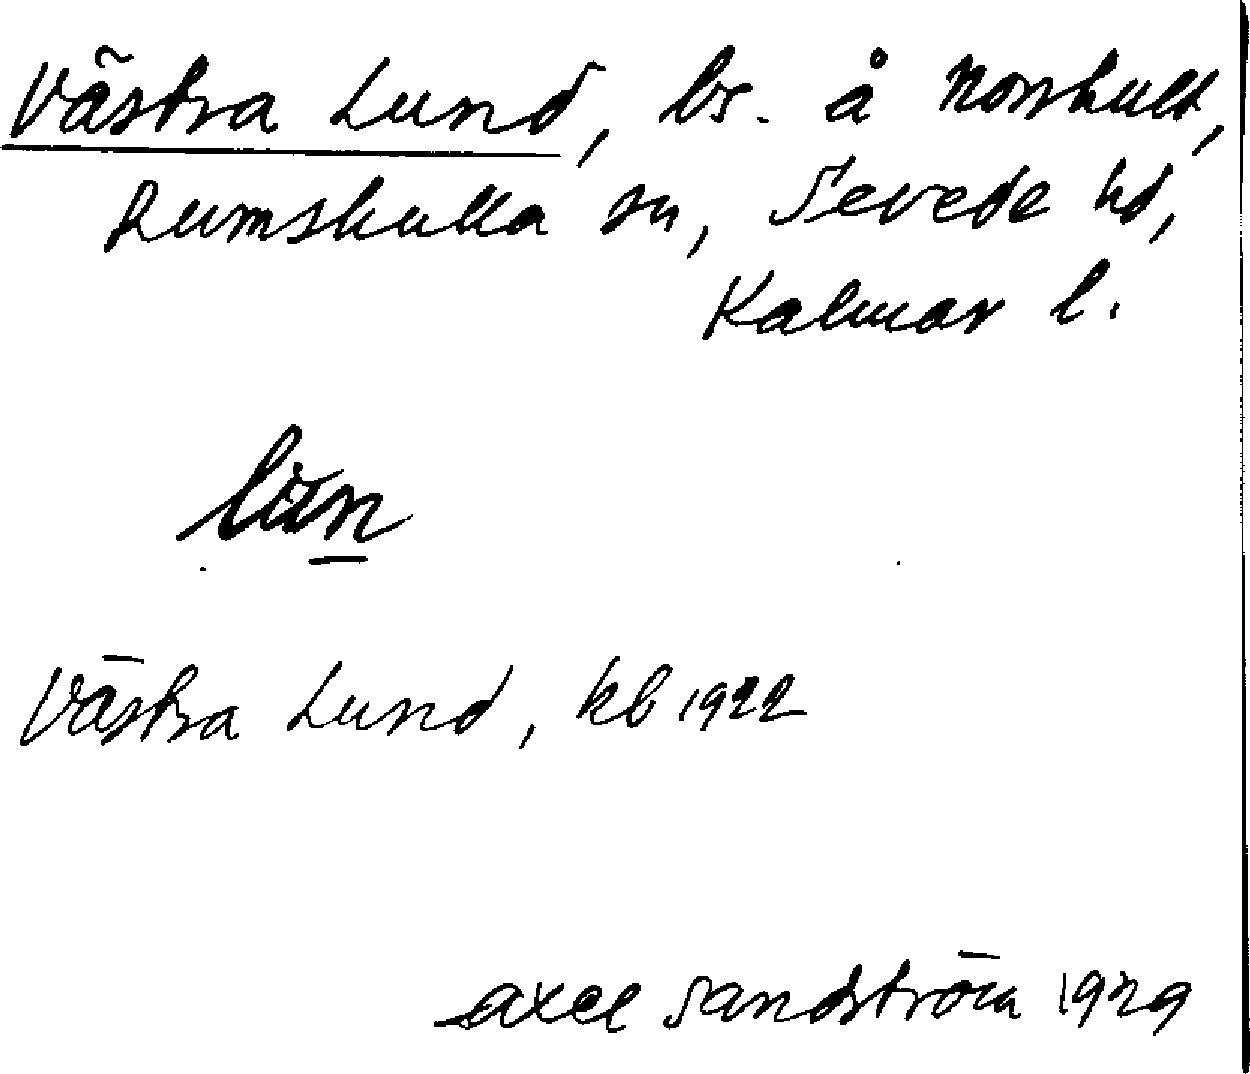 Västra Lund, ls. å Norrhult,
Rumskulla sn, Sevede hd,
Kalmar l.
Västra Lund, kb 1922
Axel Sandström 1929